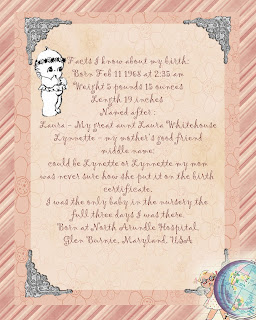 Facts I know about my birth:
Born Feb 11 1968 at 2:35 am
Weight 5 pounds 15 ounces
Length 19 inches
Named after:
Laura - My great aunt Laura Whitehouse
Lynnette - my mother's good friend
middle name
could be Lynette or Lynnette my mom
was never sure how she put it on the birth
certificate.
I was the only baby in the nursery the
full three days I was there.
Born at North Arundle Hospital
Glen Burnie, Maryland, USA